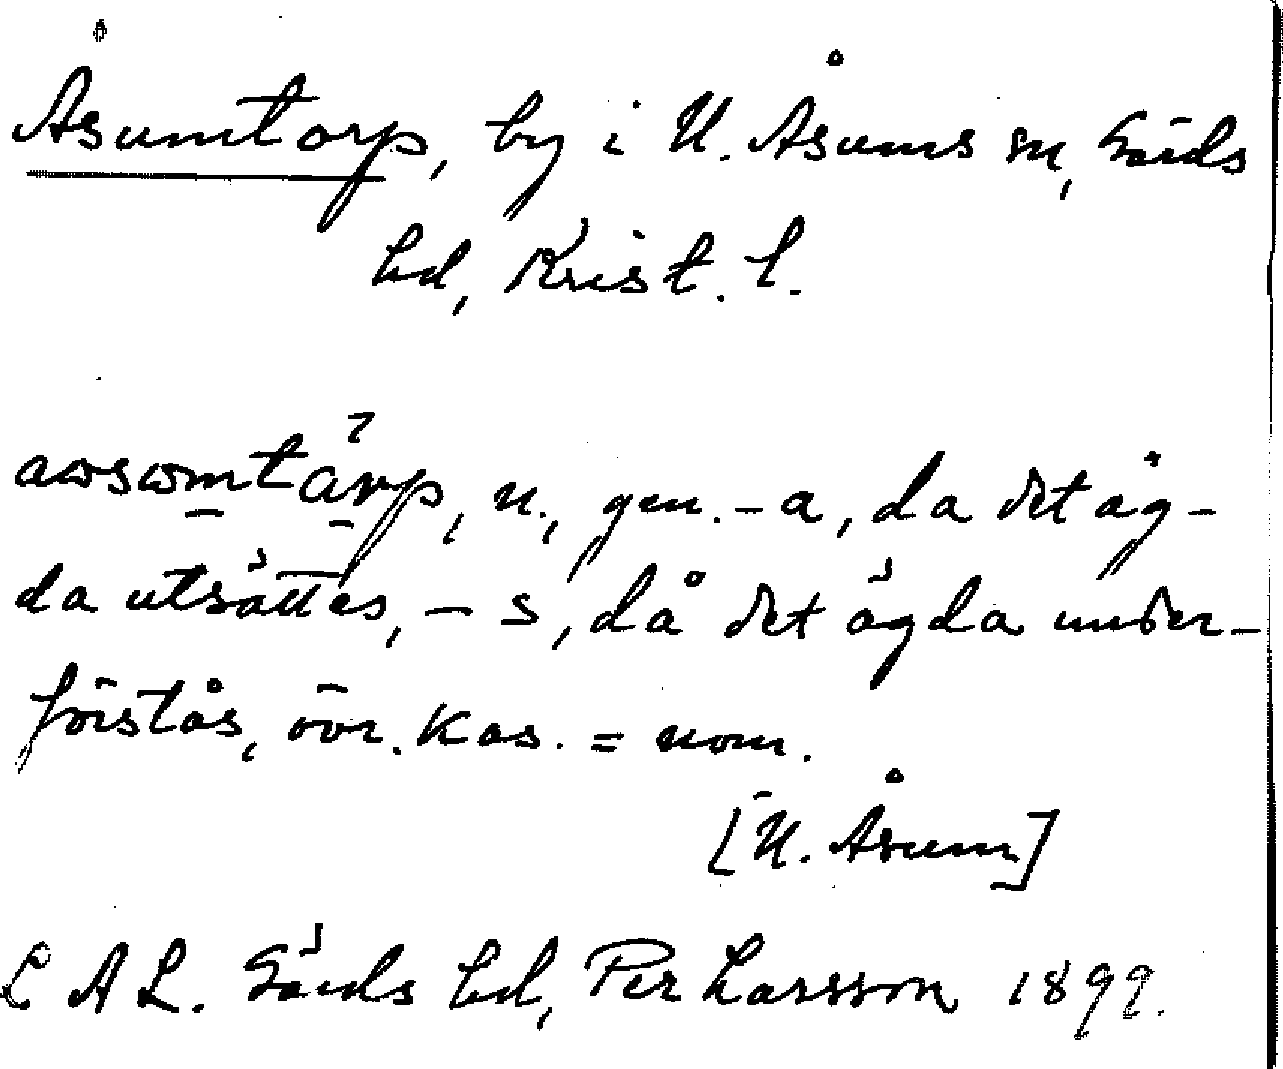 Åsumtorp, by i N. Åsums sn, Gärds
hd, Krist. l.
da utsättes, – s, då det ägda under-
förstås, övr. kas. = nom.
[N. Åsum]
L A L. Gärds hd, Per Larsson 1899.
n., gen. – a, då det äg-